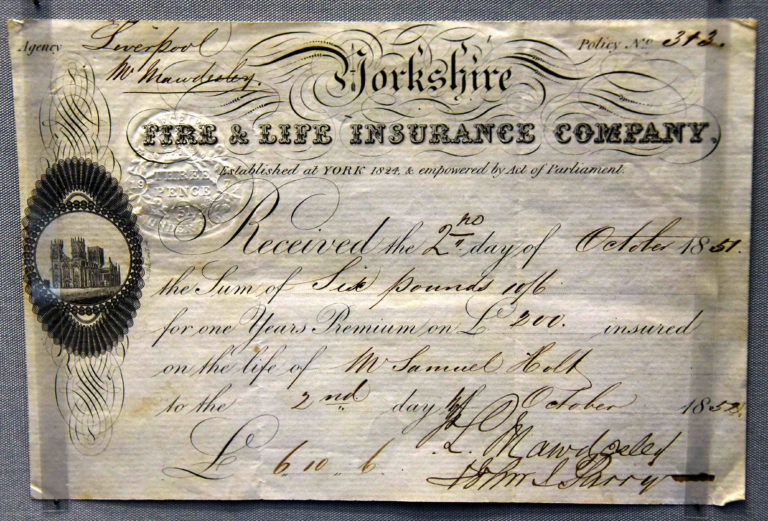 Agency Liverpool Policy No. 343.
Mr Mawdesley.
Yorkshire
FIRE & LIFE INSURANCE COMPANY,
THREE
PENCE
Established at YORK 1824, & empowered by Act of Parliament.
Received the 2nd day of October 1851.
the Sum of Six pounds 10/6
for one Years Premium on £ 200. insured
on the life of Mr Samuel Holt
to the 2nd day of October 1852.
£ 6 . 10 . 6. Mawdesley
John S Parry